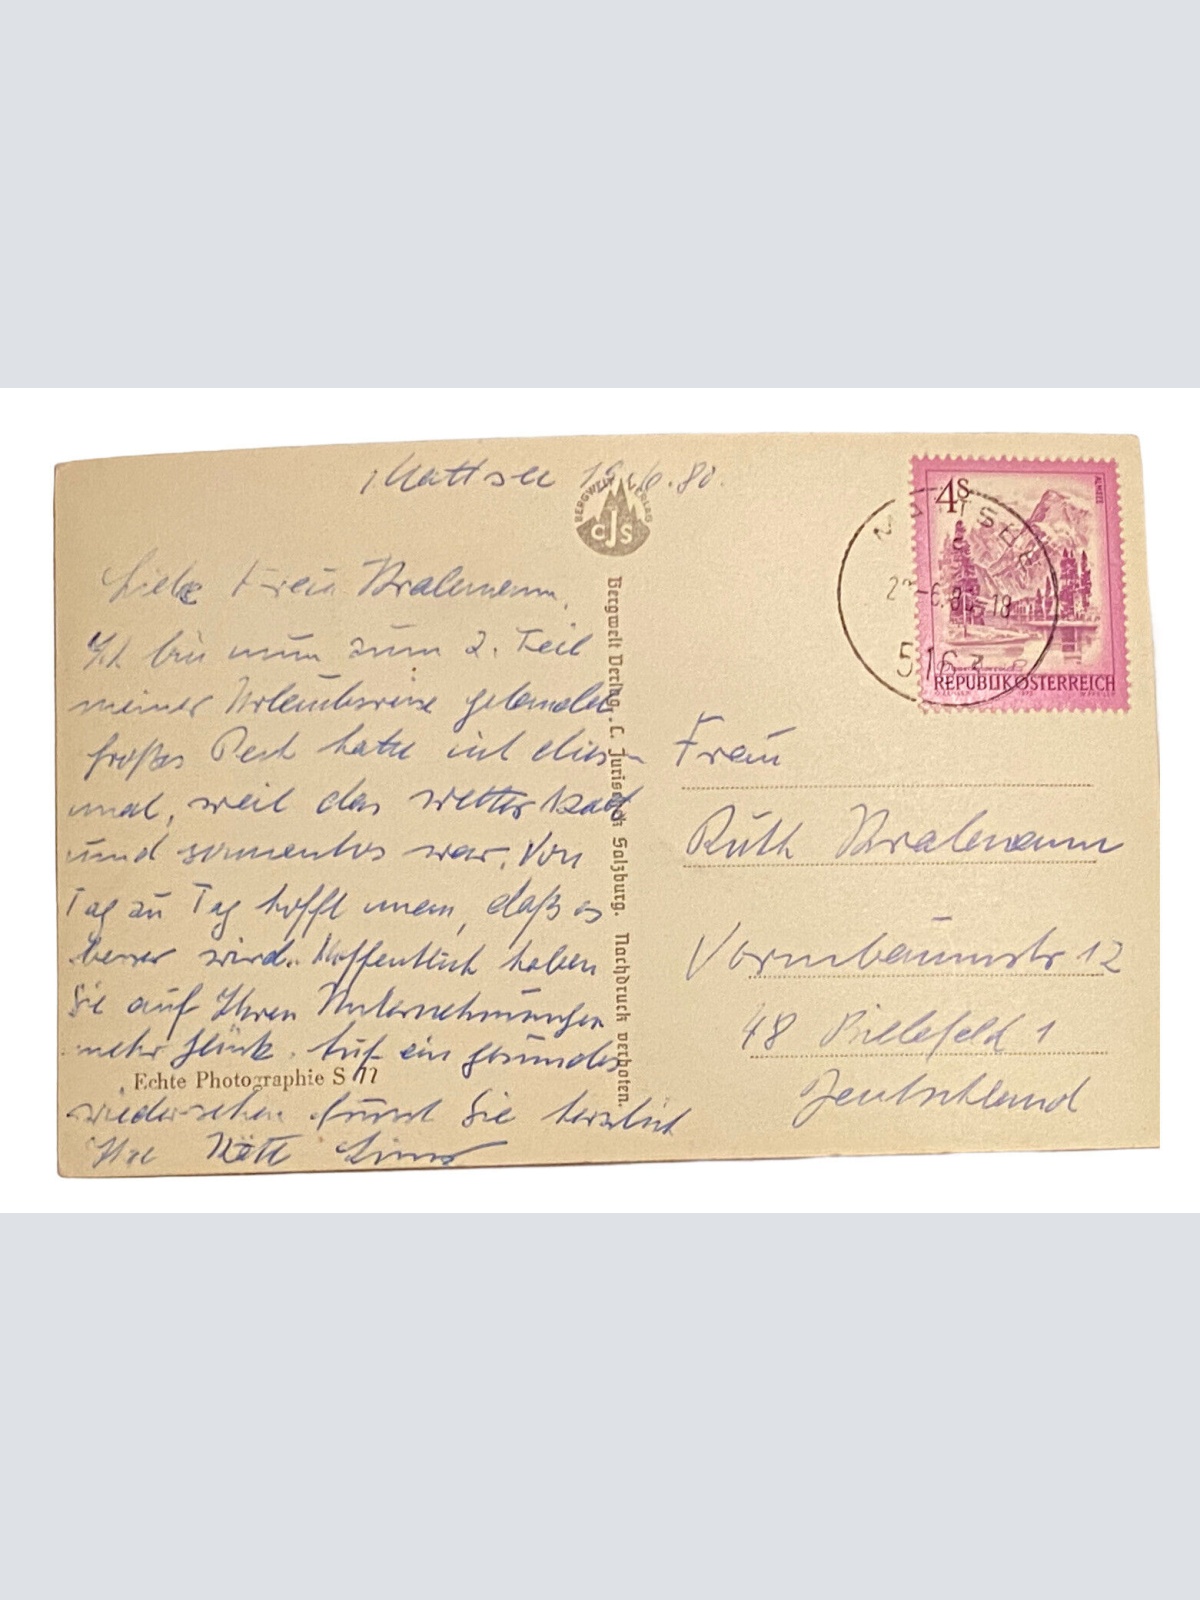 Mattsee 19.6.80.
BERGWELT VERLAG
CJS
Liebe Frau
Ich bin nun zum 2. Teil
meiner Urlaubsreise gelandet
großes Pech hatte ich dies-
mal, weil das Wetter kalt
und sonnenlos war. Von
Tag zu Tag hofft man, daß es
besser wird. Hoffentlich haben
Sie auf Ihren Unternehmungen
mehr Glück. Auf ein gesundes
Echte Photographie S
wiedersehen grüsst Sie herzlich
Ihre
Bergwelt Verlag, C. Jurischek Salzburg. Nachdruck verboten.
4S
ALMSEE
MATTSEE
6.80-18
REPUBLIK ÖSTERREICH
Frau
Ruth
Vormbaumstr 12
48 Bielefeld 1
Deutschland